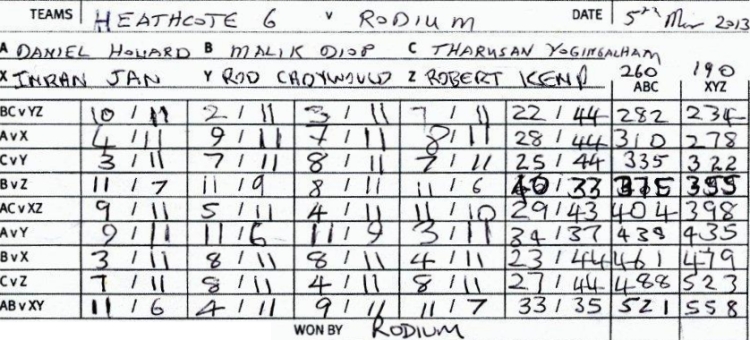 TEAMS HEATHCOTE 6 v RODIUM DATE 5th Mar 2013
A DANIEL HOWARD B MALIK DIOP C THARUSAN YOGINGALHAM
X IMRAN JAN Y ROD CADYWOULD Z ROBERT KEND 260 ABC 190 XYZ
BC v YZ 10 / 11 2 / 11 3 / 11 7 / 11 22 / 44 282 234
A v X 4 / 11 9 / 11 7 / 11 8 / 11 28 / 44 310 278
C v Y 3 / 11 7 / 11 8 / 11 7 / 11 25 / 44 335 322
B v Z 11 / 7 11 / 9 8 / 11 11 / 6 40 / 33 375 355
AC v XZ 9 / 11 5 / 11 4 / 11 11 / 10 29 / 43 404 398
A v Y 9 / 11 11 / 6 11 / 9 3 / 11 34 / 37 438 435
B v X 3 / 11 8 / 11 8 / 11 4 / 11 23 / 44 461 479
C v Z 7 / 11 8 / 11 4 / 11 8 / 11 27 / 44 488 523
AB v XY 11 / 6 4 / 11 9 / 11 11 / 7 33 / 35 521 558
WON BY RODIUM